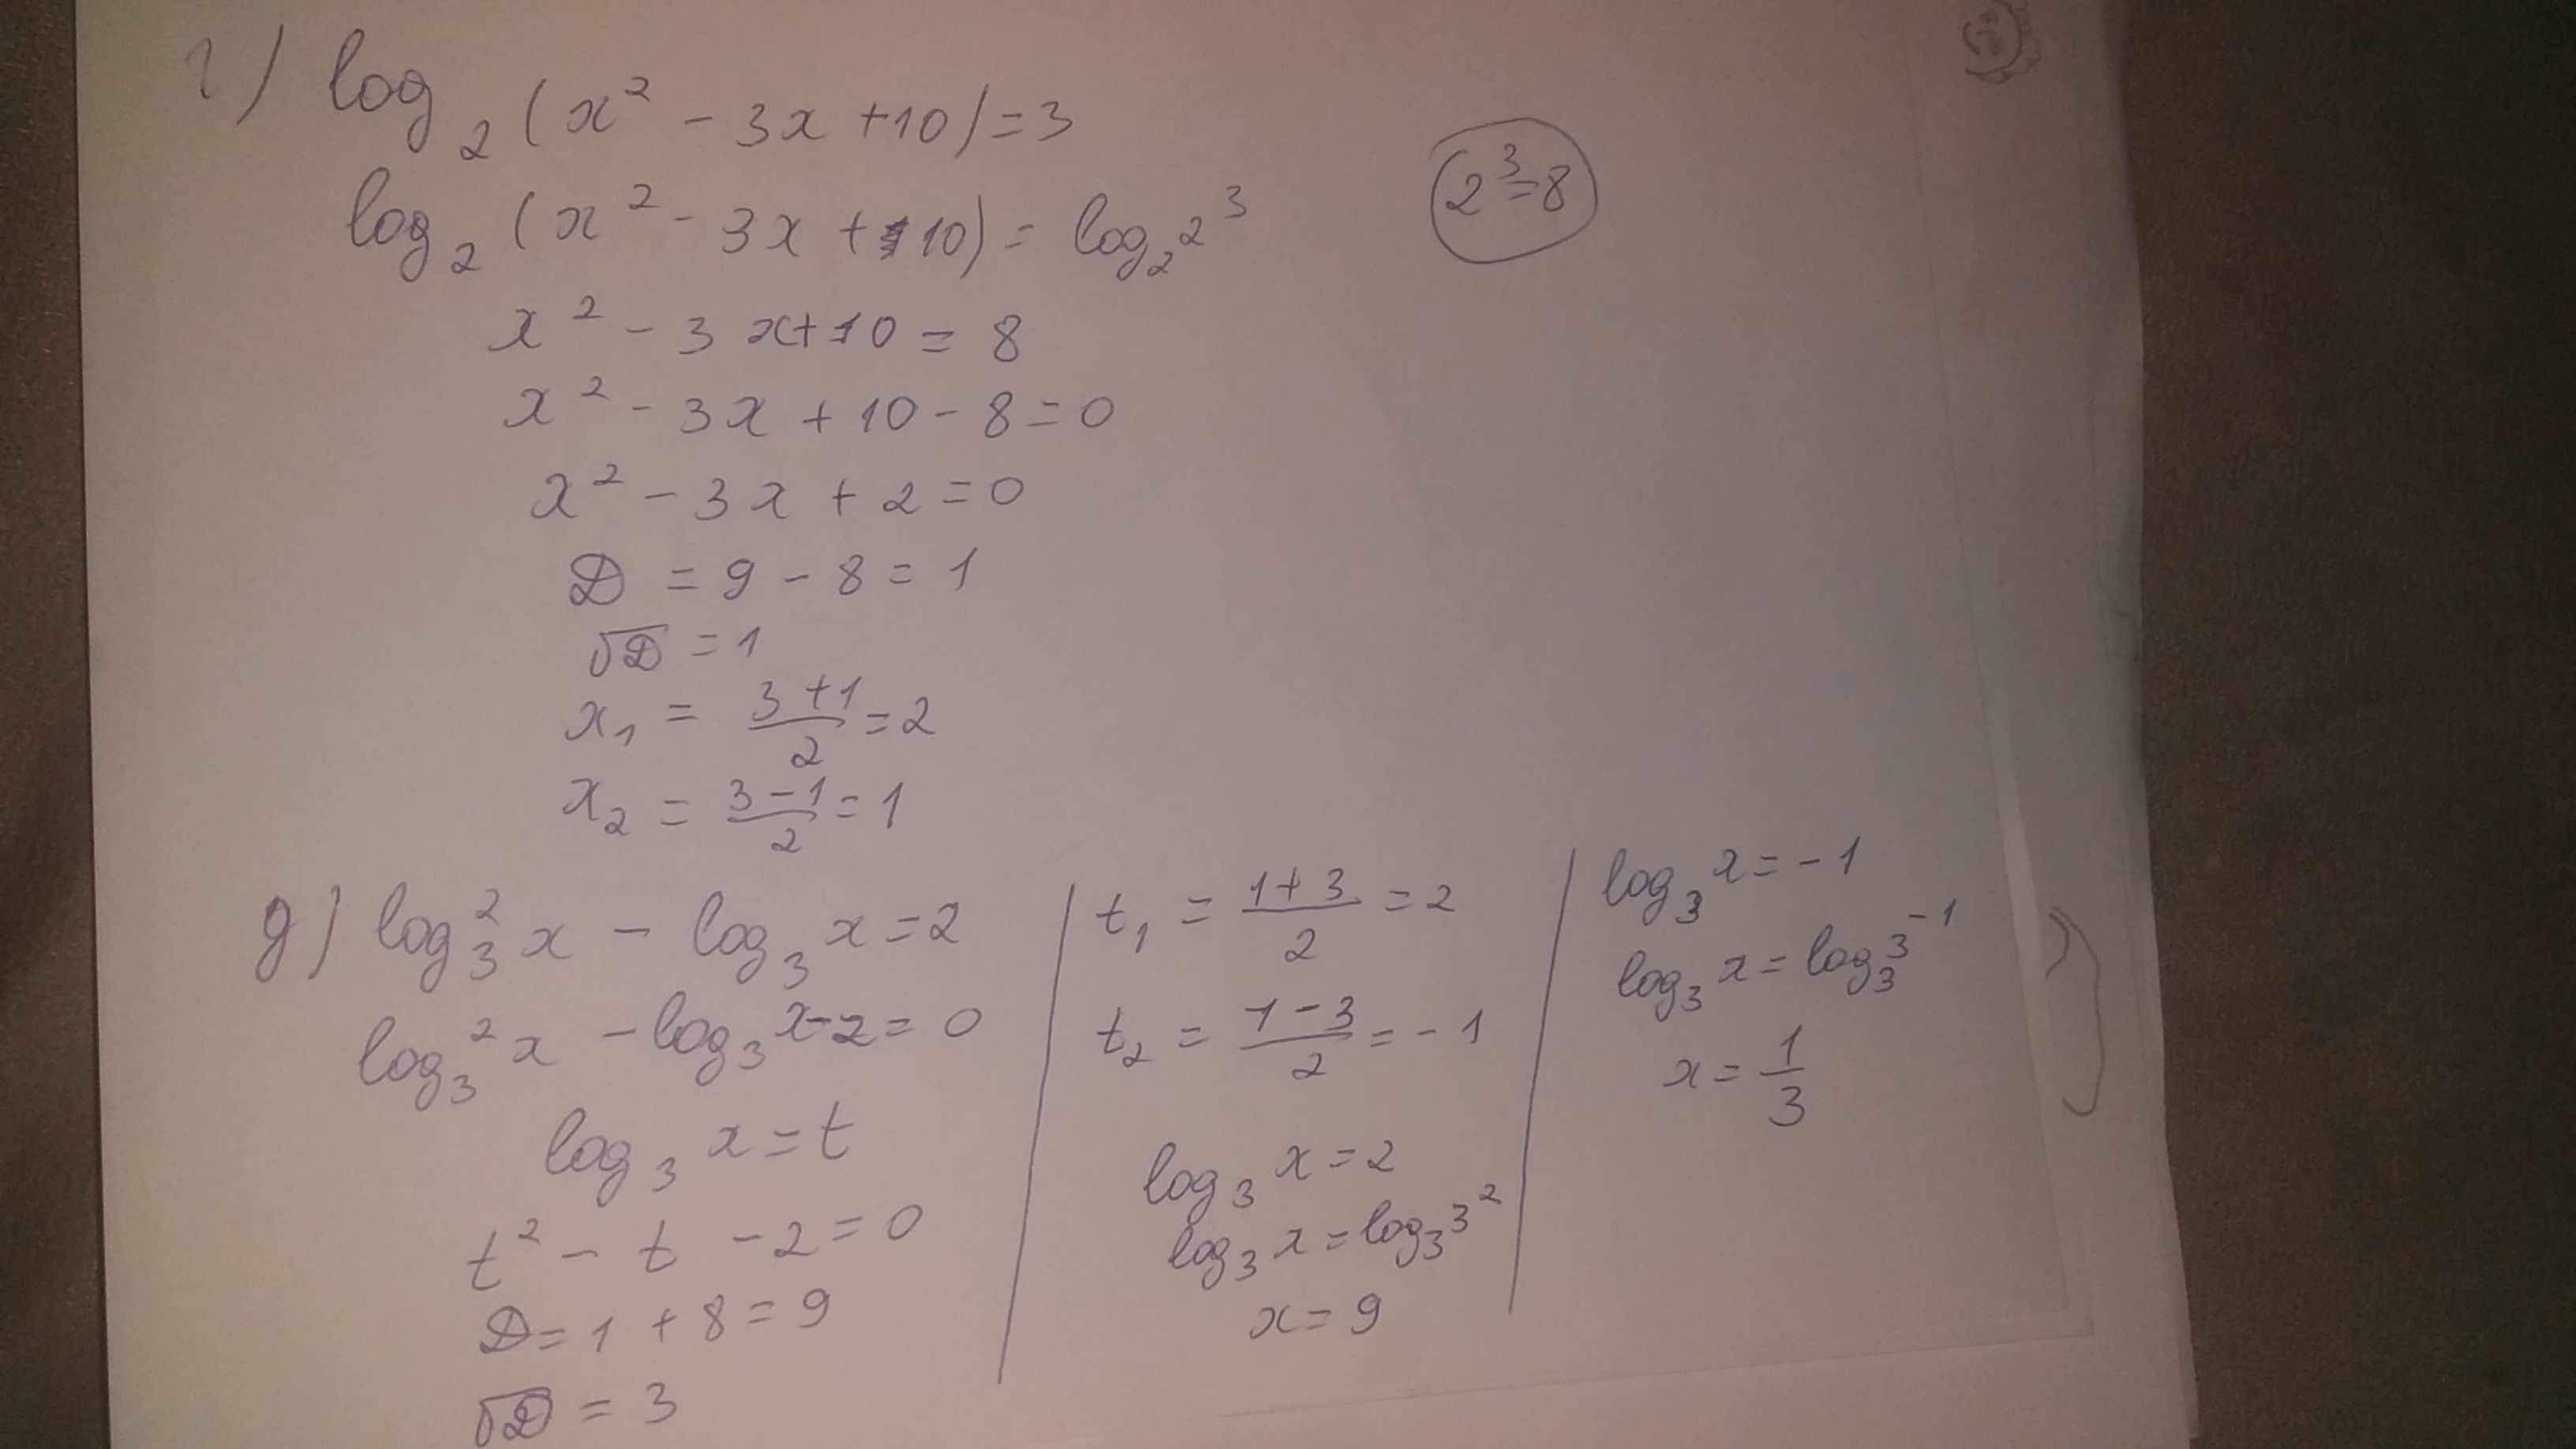 г) log₂(x² - 3x + 10) = 3
log₂(x² - 3x + 10) = log₂2³
2³ = 8
x² - 3x + 10 = 8
x² - 3x + 10 - 8 = 0
x² - 3x + 2 = 0
D = 9 - 8 = 1
√D = 1
x₁ = (3+1)/2 = 2
x₂ = (3-1)/2 = 1
g) log₃²x - log₃x = 2
log₃²x - log₃x - 2 = 0
log₃x = t
t² - t - 2 = 0
D = 1 + 8 = 9
√D = 3
t₁ = (1+3)/2 = 2
t₂ = (1-3)/2 = -1
log₃x = 2
log₃x = log₃3²
x = 9
log₃x = -1
log₃x = log₃3⁻¹
x = 1/3